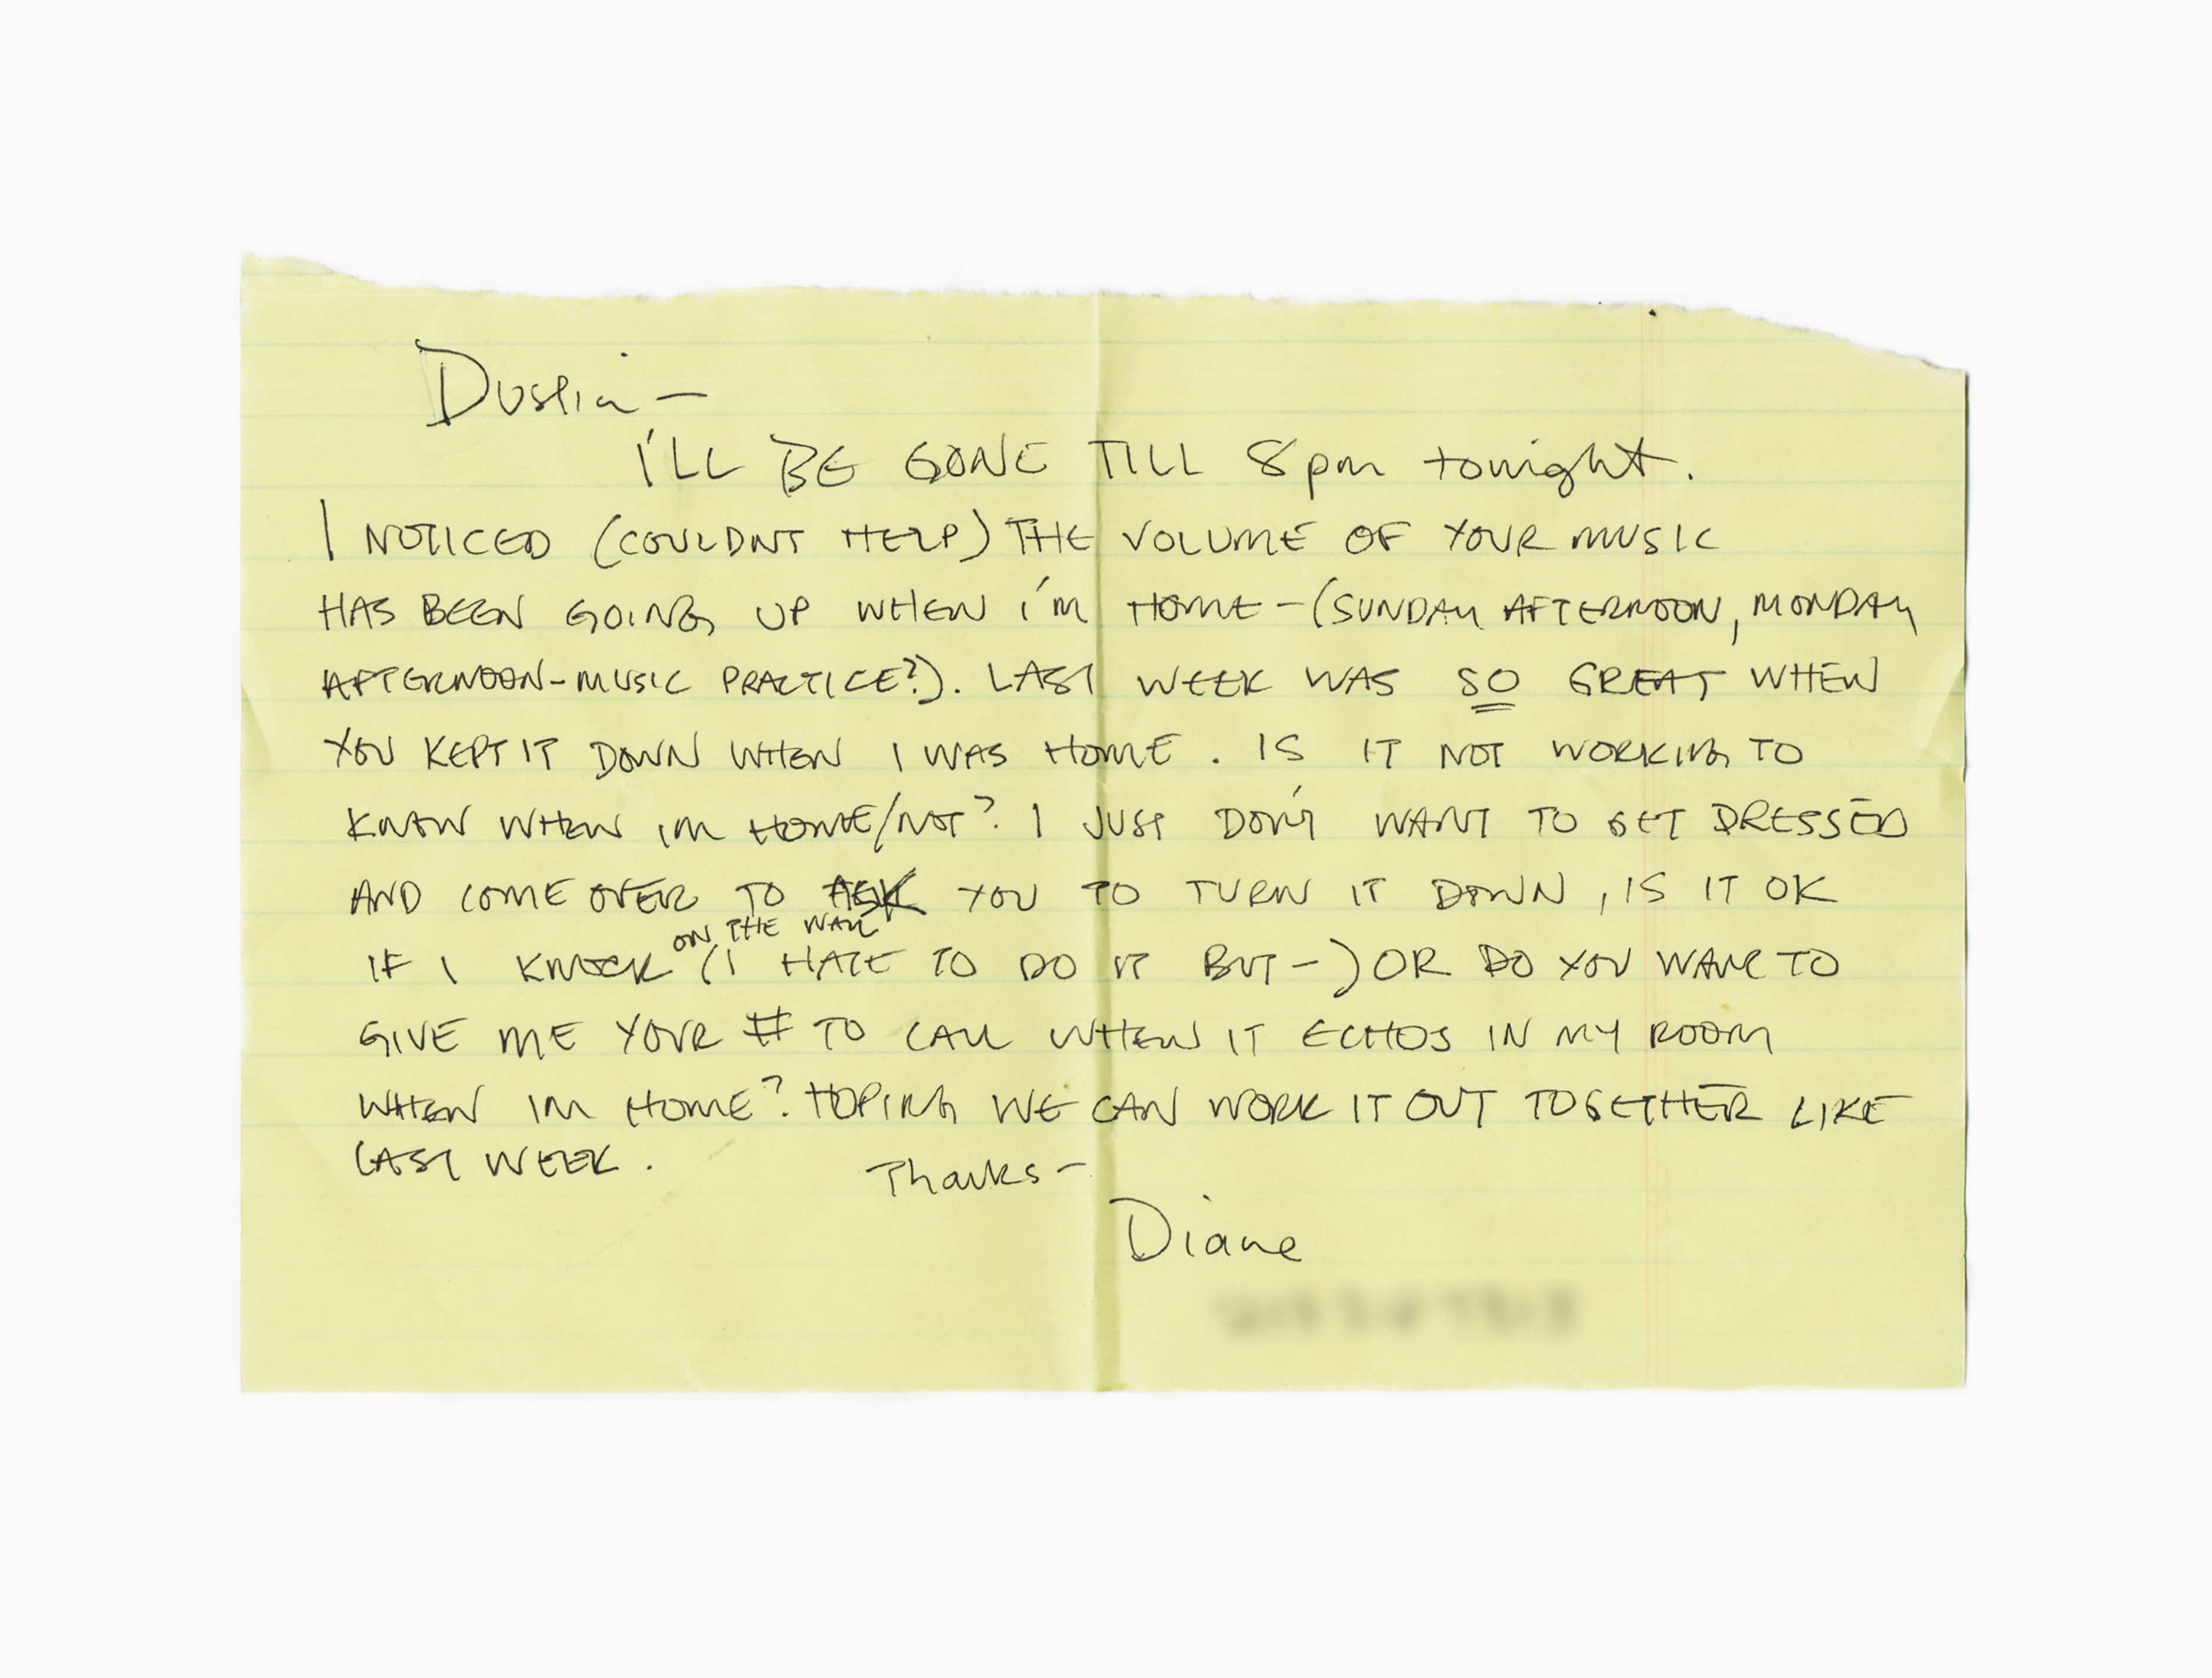 Dustin —
I'LL BE GONE TILL 8pm tonight.
I NOTICED (COULDNT HELP) THE VOLUME OF YOUR MUSIC
HAS BEEN GOING UP WHEN I'M HOME - (SUNDAY AFTERNOON, MONDAY
AFTERNOON - MUSIC PRACTICE?). LAST WEEK WAS SO GREAT WHEN
YOU KEPT IT DOWN WHEN I WAS HOME. IS IT NOT WORKING TO
KNOW WHEN IM HOME/NOT? I JUST DON'T WANT TO GET DRESSED
AND COME OVER TO ASK YOU TO TURN IT DOWN, IS IT OK
ON THE WALL
IF I KNOCK (I HATE TO DO IT BUT -) OR DO YOU WANT TO
GIVE ME YOUR # TO CALL WHEN IT ECHOS IN MY ROOM
WHEN IM HOME? HOPING WE CAN WORK IT OUT TOGETHER LIKE
LAST WEEK.
Thanks —
Diane